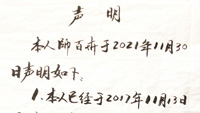 声 明
本人師百卉于2021年11月30
日声明如下:
1.本人已经于2017年11月13日